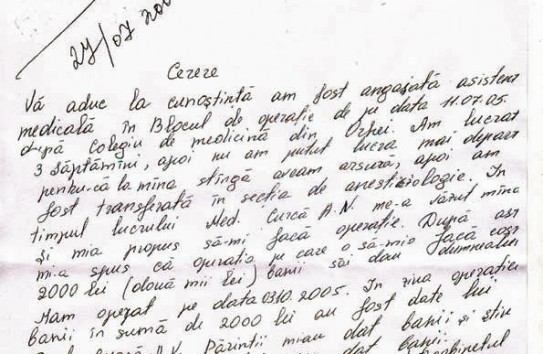 27/07 200
Cerere
Vă aduc la cunoștință am fost angajată asistent
medicală în Blocul de operație de pe data 11.07.05.
după Colegiu de medicină din Orhei. Am lucrat
3 săptămîni, apoi nu am putut lucra mai departe
pentru-că la mîna stîngă aveam arsură, apoi am
fost transferată în secția de anestiziologie. În
timpul lucrului Med. Curcă A.N. me-a văzut mîna
și mia propus să-mi facă operație. După as
mi-a spus că operația pe care o să-mio facă cos
2000 lei (două mii lei) banii săi dau dumnealui
Mam operat pe data 03.10.2005. În ziua operației
banii în sumă de 2000 lei au fost date lui
Părinții miau dat banii și știu
dat banii.